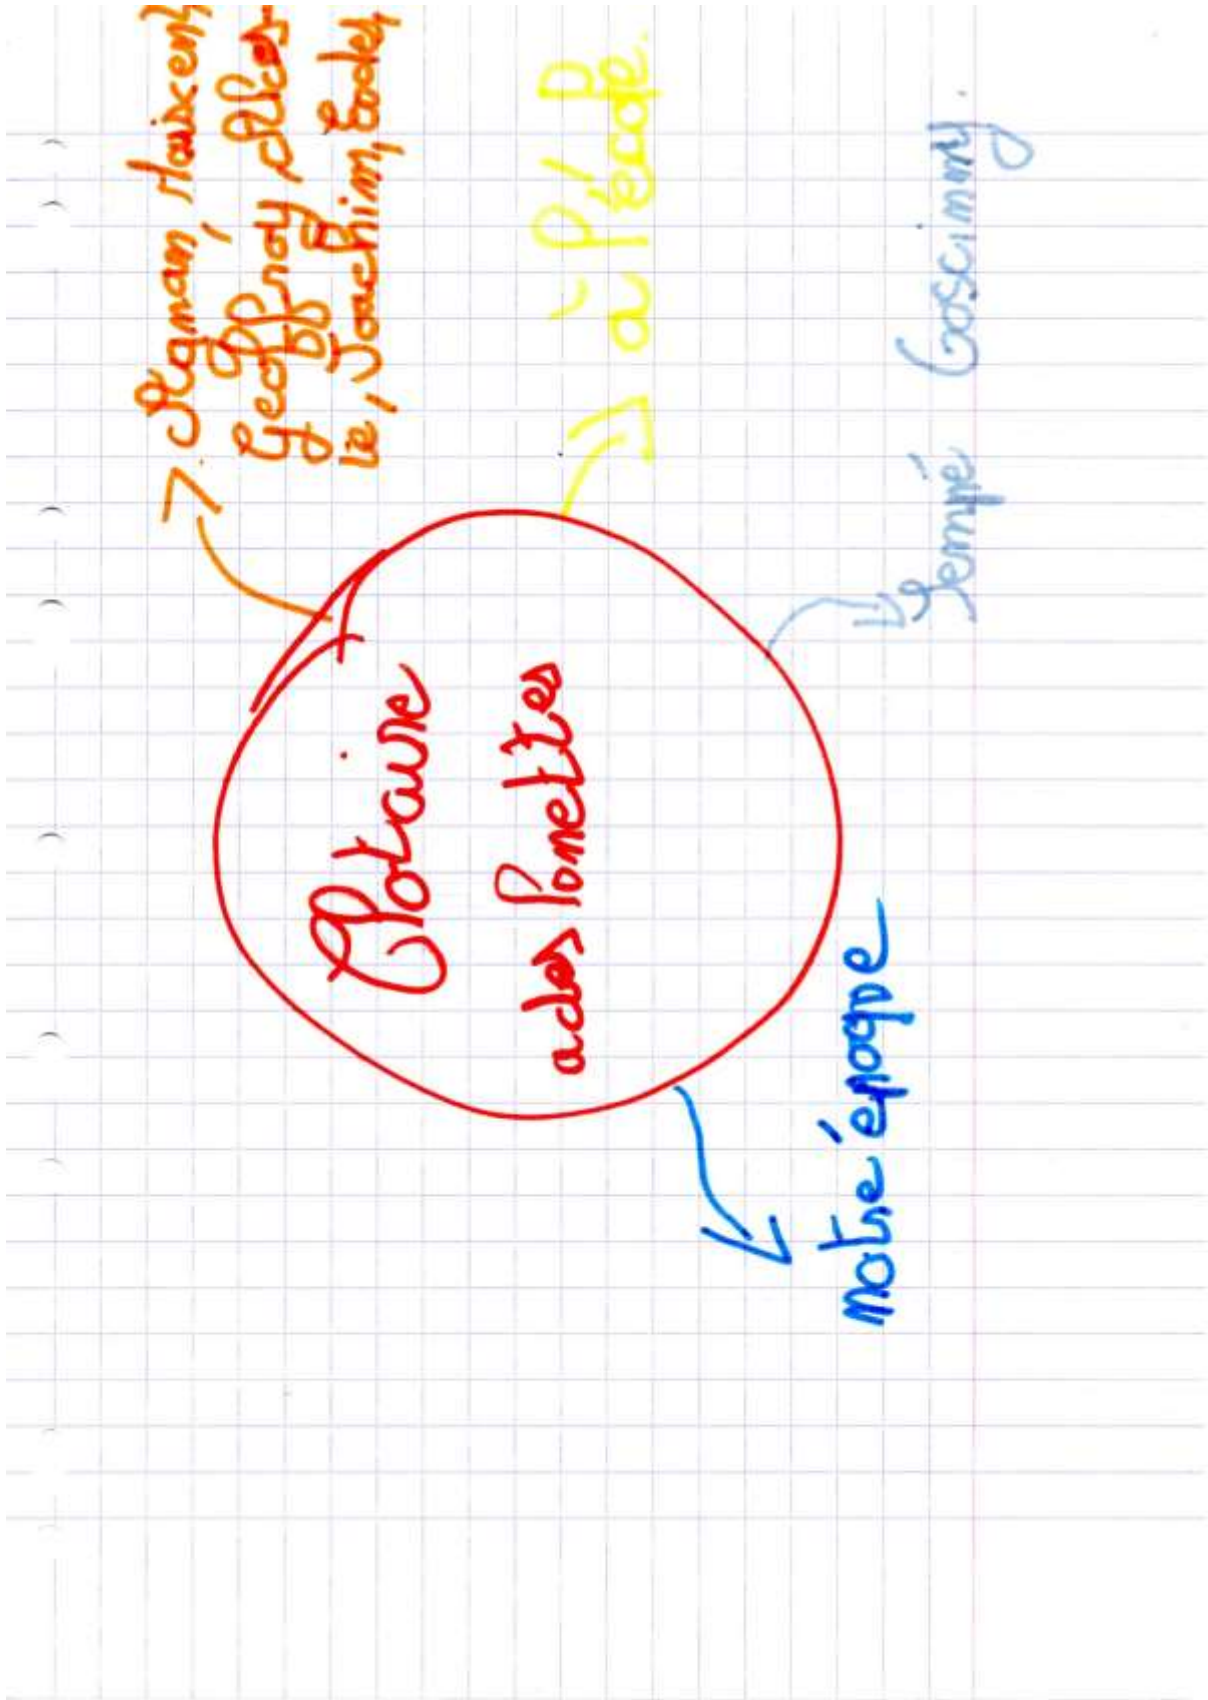 Clotaire
a des lunettes
Agnan, Maixent
Geoffroy, Alces-
te, Joachim, Eudes,
à l'école.
Sempé Goscinny.
notre époque